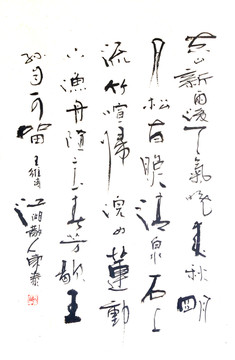 空山新雨後天氣晚來秋明
月松間照清泉石上
流竹喧歸浣女蓮動
下漁舟隨意春芳歇王
孫自可留 王維詩 江湖散人